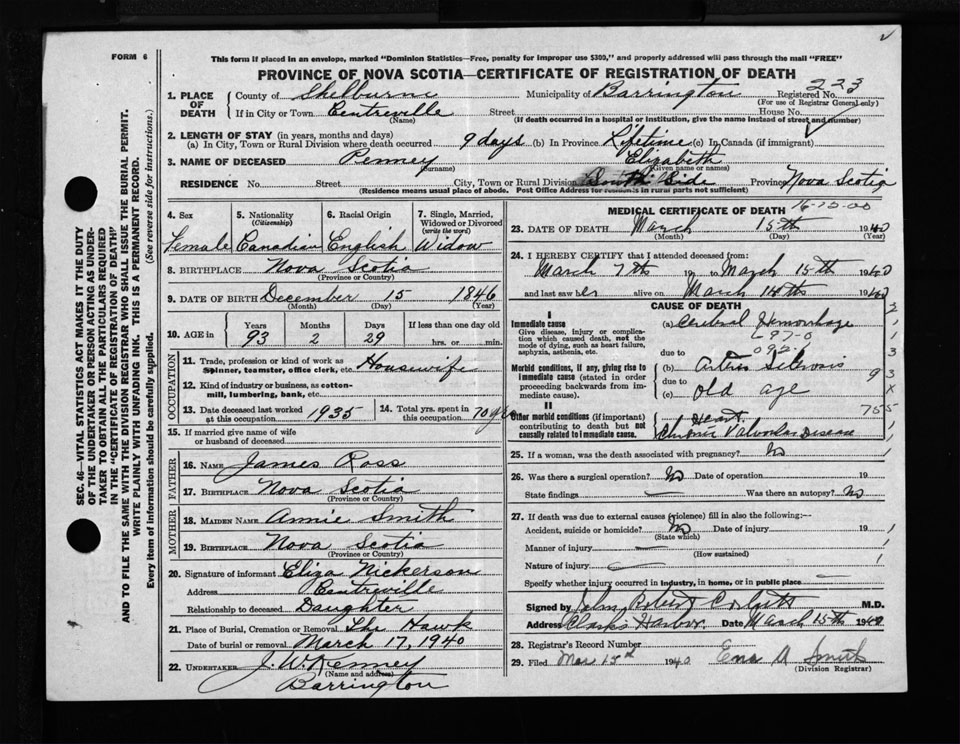 FORM 6
This form if placed in an envelope, marked "Dominion Statistics—Free, penalty for improper use $300," and properly addressed will pass through the mail "FREE"
PROVINCE OF NOVA SCOTIA—CERTIFICATE OF REGISTRATION OF DEATH
SEC. 46—VITAL STATISTICS ACT MAKES IT THE DUTY
OF THE UNDERTAKER OR PERSON ACTING AS UNDER-
TAKER TO OBTAIN ALL THE PARTICULARS REQUIRED
IN THE "CERTIFICATE OF REGISTRATION OF DEATH"
AND TO FILE THE SAME WITH THE DIVISION REGISTRAR WHO SHALL ISSUE THE BURIAL PERMIT.
WRITE PLAINLY WITH UNFADING INK. THIS IS A PERMANENT RECORD.
Every item of information should be carefully supplied. (See reverse side for instructions.)
1. PLACE OF DEATH County of Shelburne Municipality of Barrington Registered No. 223
(For use of Registrar General only)
If in City or Town Centreville Street House No.
(Name) (If death occurred in a hospital or institution, give the name instead of street and number)
2. LENGTH OF STAY (in years, months and days)
(a) In City, Town or Rural Division where death occurred 9 days (b) In Province Lifetime (c) In Canada (if immigrant)
3. NAME OF DECEASED Penney Elizabeth
(Surname) (Given name or names)
RESIDENCE No. Street City, Town or Rural Division South Side Province Nova Scotia
(Residence means usual place of abode. Post Office Address for residents in rural parts not sufficient)
4. Sex 5. Nationality (Citizenship) 6. Racial Origin 7. Single, Married, Widowed or Divorced (write the word)
Female Canadian English Widow
8. BIRTHPLACE Nova Scotia
(Province or Country)
9. DATE OF BIRTH December 15 1846
(Month) (Day) (Year)
10. AGE in Years Months Days If less than one day old
93 2 29 hrs. or min.
OCCUPATION
11. Trade, profession or kind of work as Spinner, teamster, office clerk, etc. Housewife
12. Kind of industry or business, as cotton-mill, lumbering, bank, etc.
13. Date deceased last worked at this occupation 1935 14. Total yrs. spent in this occupation 70 yrs
15. If married give name of wife or husband of deceased
FATHER
16. NAME James Ross
17. BIRTHPLACE Nova Scotia
(Province or Country)
MOTHER
18. MAIDEN NAME Annie Smith
19. BIRTHPLACE Nova Scotia
(Province or Country)
20. Signature of informant Eliza Nickerson
Address Centreville
Relationship to deceased Daughter
21. Place of Burial, Cremation or Removal The Hawk
Date of burial or removal March 17, 1940
22. UNDERTAKER J. W. Kenney
(Name and address)
Barrington
MEDICAL CERTIFICATE OF DEATH
23. DATE OF DEATH March 15th 1940
(Month) (Day) (Year)
24. I HEREBY CERTIFY that I attended deceased from:
March 7th 19 to March 15th 1940
and last saw her alive on March 14th 1940
CAUSE OF DEATH
I
Immediate cause (a) Cerebral Hemorrhage
Give disease, injury or complication which caused death, not the mode of dying, such as heart failure, asphyxia, asthenia, etc.
due to
Morbid conditions, if any, giving rise to immediate cause (stated in order proceeding backwards from immediate cause). (b) Arterio Sclerosis
due to
(c) old age
II
Other morbid conditions (if important) contributing to death but not causally related to immediate cause. Chronic Valvular Heart Disease
25. If a woman, was the death associated with pregnancy? No
26. Was there a surgical operation? No Date of operation 19
State findings — Was there an autopsy? No
27. If death was due to external causes (violence) fill in also the following:—
Accident, suicide or homicide? No Date of injury 19
(State which)
Manner of injury —
(How sustained)
Nature of injury
Specify whether injury occurred in industry, in home, or in public place —
Signed by John Robert Corbett M.D.
Address Clark's Harbor. Date March 15th 1940
28. Registrar's Record Number
29. Filed Mar 15 1940 Ena A Smith
(Division Registrar)